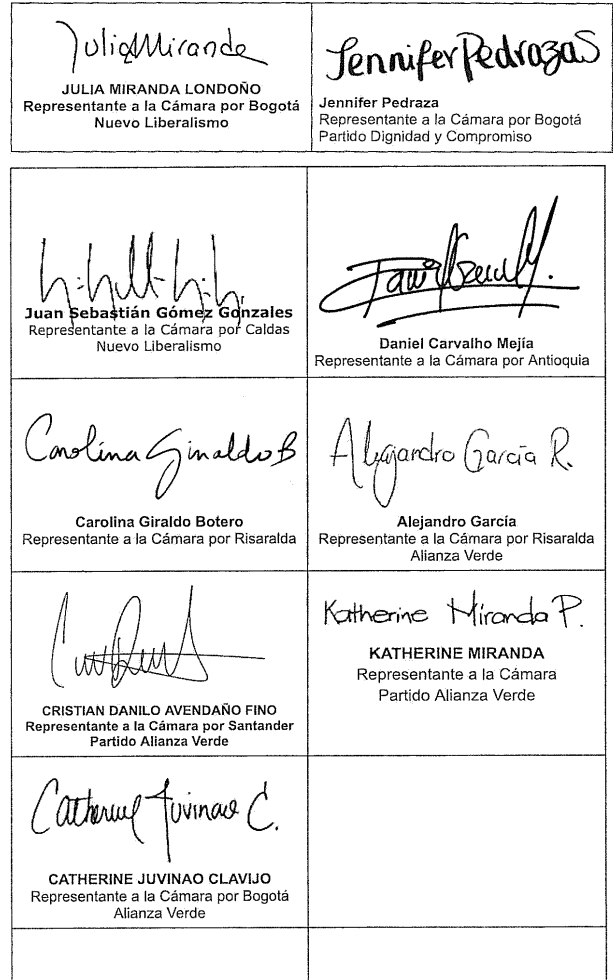 JuliaMiranda
JULIA MIRANDA LONDOÑO
Representante a la Cámara por Bogotá
Nuevo Liberalismo
JenniferPedrazaS
Jennifer Pedraza
Representante a la Cámara por Bogotá
Partido Dignidad y Compromiso
Juan Sebastián Gómez Gonzales
Representante a la Cámara por Caldas
Nuevo Liberalismo
Daniel Carvalho Mejía
Representante a la Cámara por Antioquia
Carolina Giraldo B
Carolina Giraldo Botero
Representante a la Cámara por Risaralda
Alejandro García R.
Alejandro García
Representante a la Cámara por Risaralda
Alianza Verde
CRISTIAN DANILO AVENDAÑO FINO
Representante a la Cámara por Santander
Partido Alianza Verde
Katherine Miranda P.
KATHERINE MIRANDA
Representante a la Cámara
Partido Alianza Verde
Catherine Juvinao C.
CATHERINE JUVINAO CLAVIJO
Representante a la Cámara por Bogotá
Alianza Verde